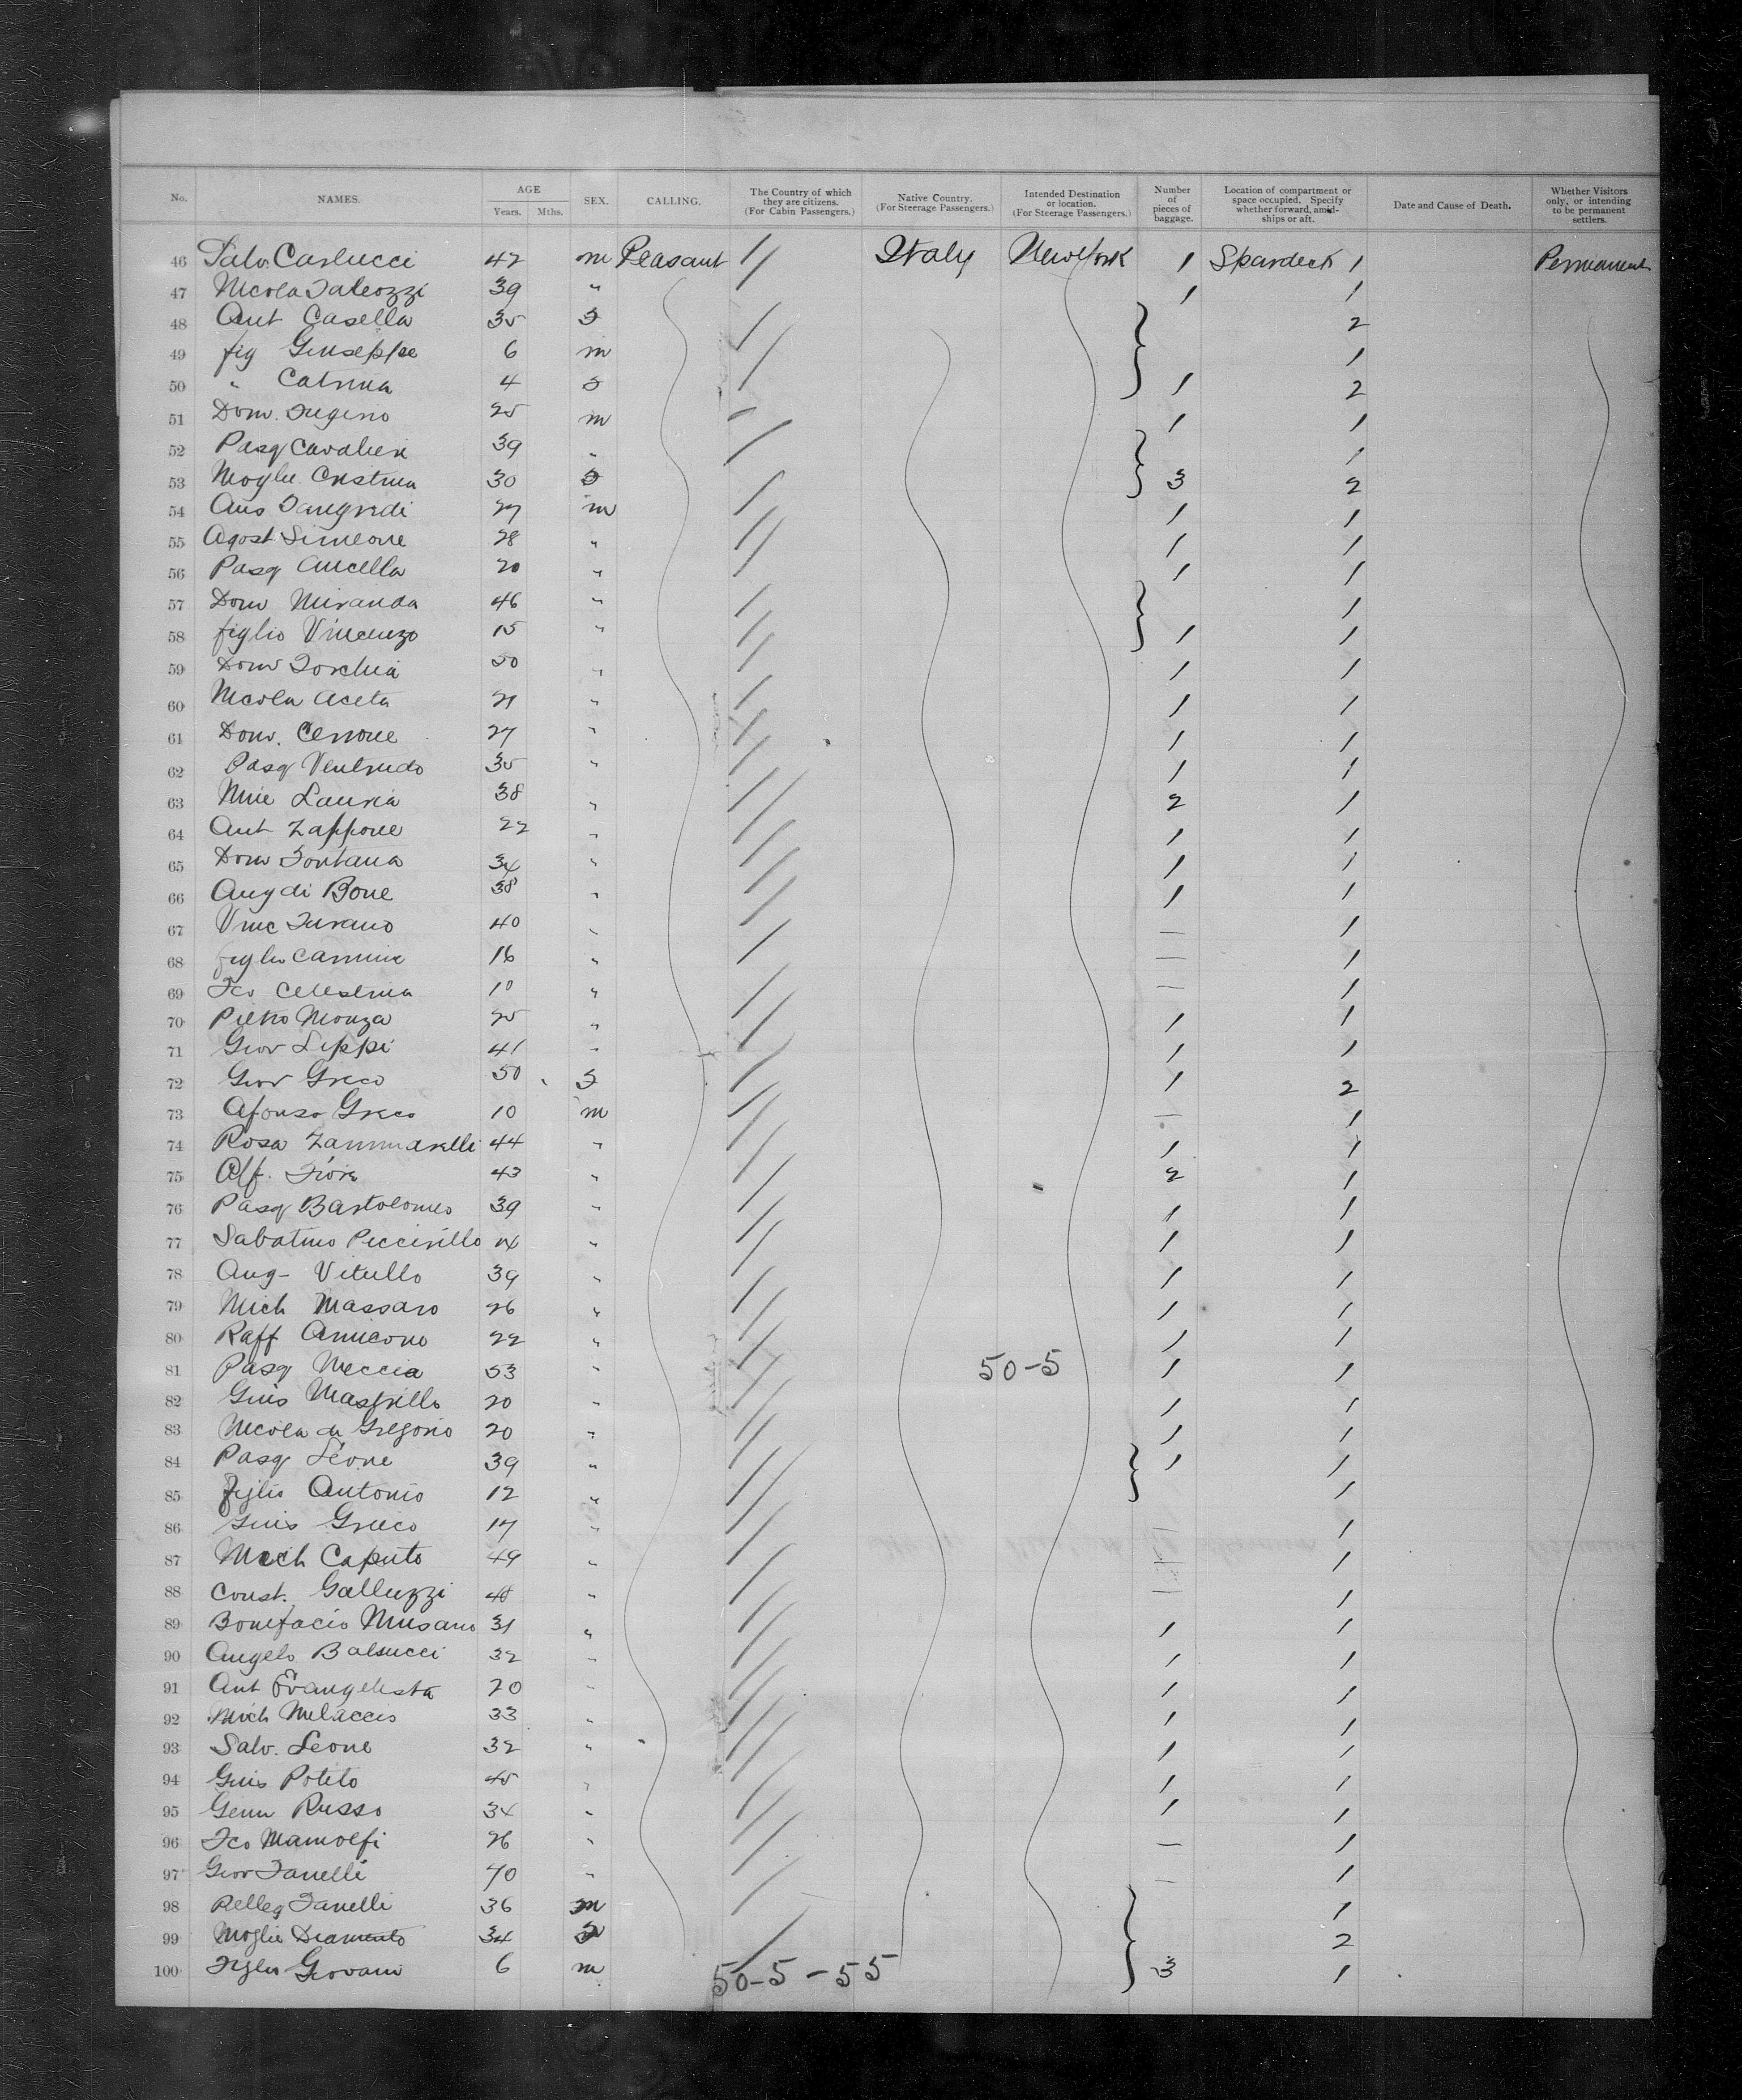 No. NAMES. AGE Years. Mths. SEX. CALLING. The Country of which they are citizens. (For Cabin Passengers.) Native Country. (For Steerage Passengers.) Intended Destination or location. (For Steerage Passengers.) Number of pieces of baggage. Location of compartment or space occupied. Specify whether forward, amid-ships or aft. Date and Cause of Death. Whether Visitors only, or intending to be permanent settlers.
46 Salv. Carlucci 42 m Peasant // Italy New York 1 Spardeck 1 Permanent
47 Nicola Taleozzi 39 " 1 1
48 Ant Casella 35 f 2
49 fig Giuseppe 6 m 1
50 " Catrina 4 f 1 2
51 Dom. 25 m 1 1
52 Pasq Cavalieri 39 " 1
53 Moglie Cristina 30 f 3 2
54 27 m 1 1
55 Agost Simeone 28 " 1 1
56 Pasq Aucella 20 " 1 1
57 Dom Miranda 46 " 1
58 figlio Vincenzo 15 " 1 1
59 Dom Torchia 50 " 1 1
60 Nicola Aceta 21 " 1 1
61 Dom. Cerrone 27 " 1 1
62 Pasq 35 " 1 1
63 Lauria 38 " 2 1
64 Ant Zappone 22 " 1 1
65 Dom Fontana 34 " 1 1
66 Ang di Bone 38 " 1 1
67 Vinc Turano 40 " — 1
68 figlio Carmine 16 " — 1
69 Fco Celestina 10 " — 1
70 Pietro Monza 25 " 1 1
71 Giov Lippi 41 " 1 1
72 Giov Greco 50 f 1 2
73 Afonso Greco 10 m — 1
74 Rosa Zammarelli 44 " 1 1
75 Alf. Fiore 43 " 2 1
76 Pasq Bartolomeo 39 " 1 1
77 Sabatino Piccirillo " 1 1
78 Ang- Vitullo 39 " 1 1
79 Mich Massaro 26 " 1 1
80 Raff Amicone 22 " 1 1
81 Pasq Meccia 33 " 50-5 1 1
82 Guis Mastrillo 20 " 1 1
83 Nicola di Gregorio 20 " 1 1
84 Pasq Leone 39 " 1 1
85 figlio Antonio 12 " 1
86 Guis Greco 17 " — 1
87 Mich Caputo 49 " — 1
88 Const. Galluzzi 48 " — 1
89 Bonifacio Musano 31 " 1 1
90 Angelo Balsucci 32 " 1 1
91 Ant Evangelista 20 " 1 1
92 Mich Melaccio 33 " 1 1
93 Salv. Leone 32 " 1 1
94 Guis Potito 45 " 1 1
95 Genn Russo 34 " 1 1
96 Fco Mamolfi 26 " — 1
97 Giov Ianelli 70 " — 1
98 Pelleg Ianelli 36 m 1
99 Moglie 34 f 2
100 Figlio Giovani 6 m 3 1
50-5-55